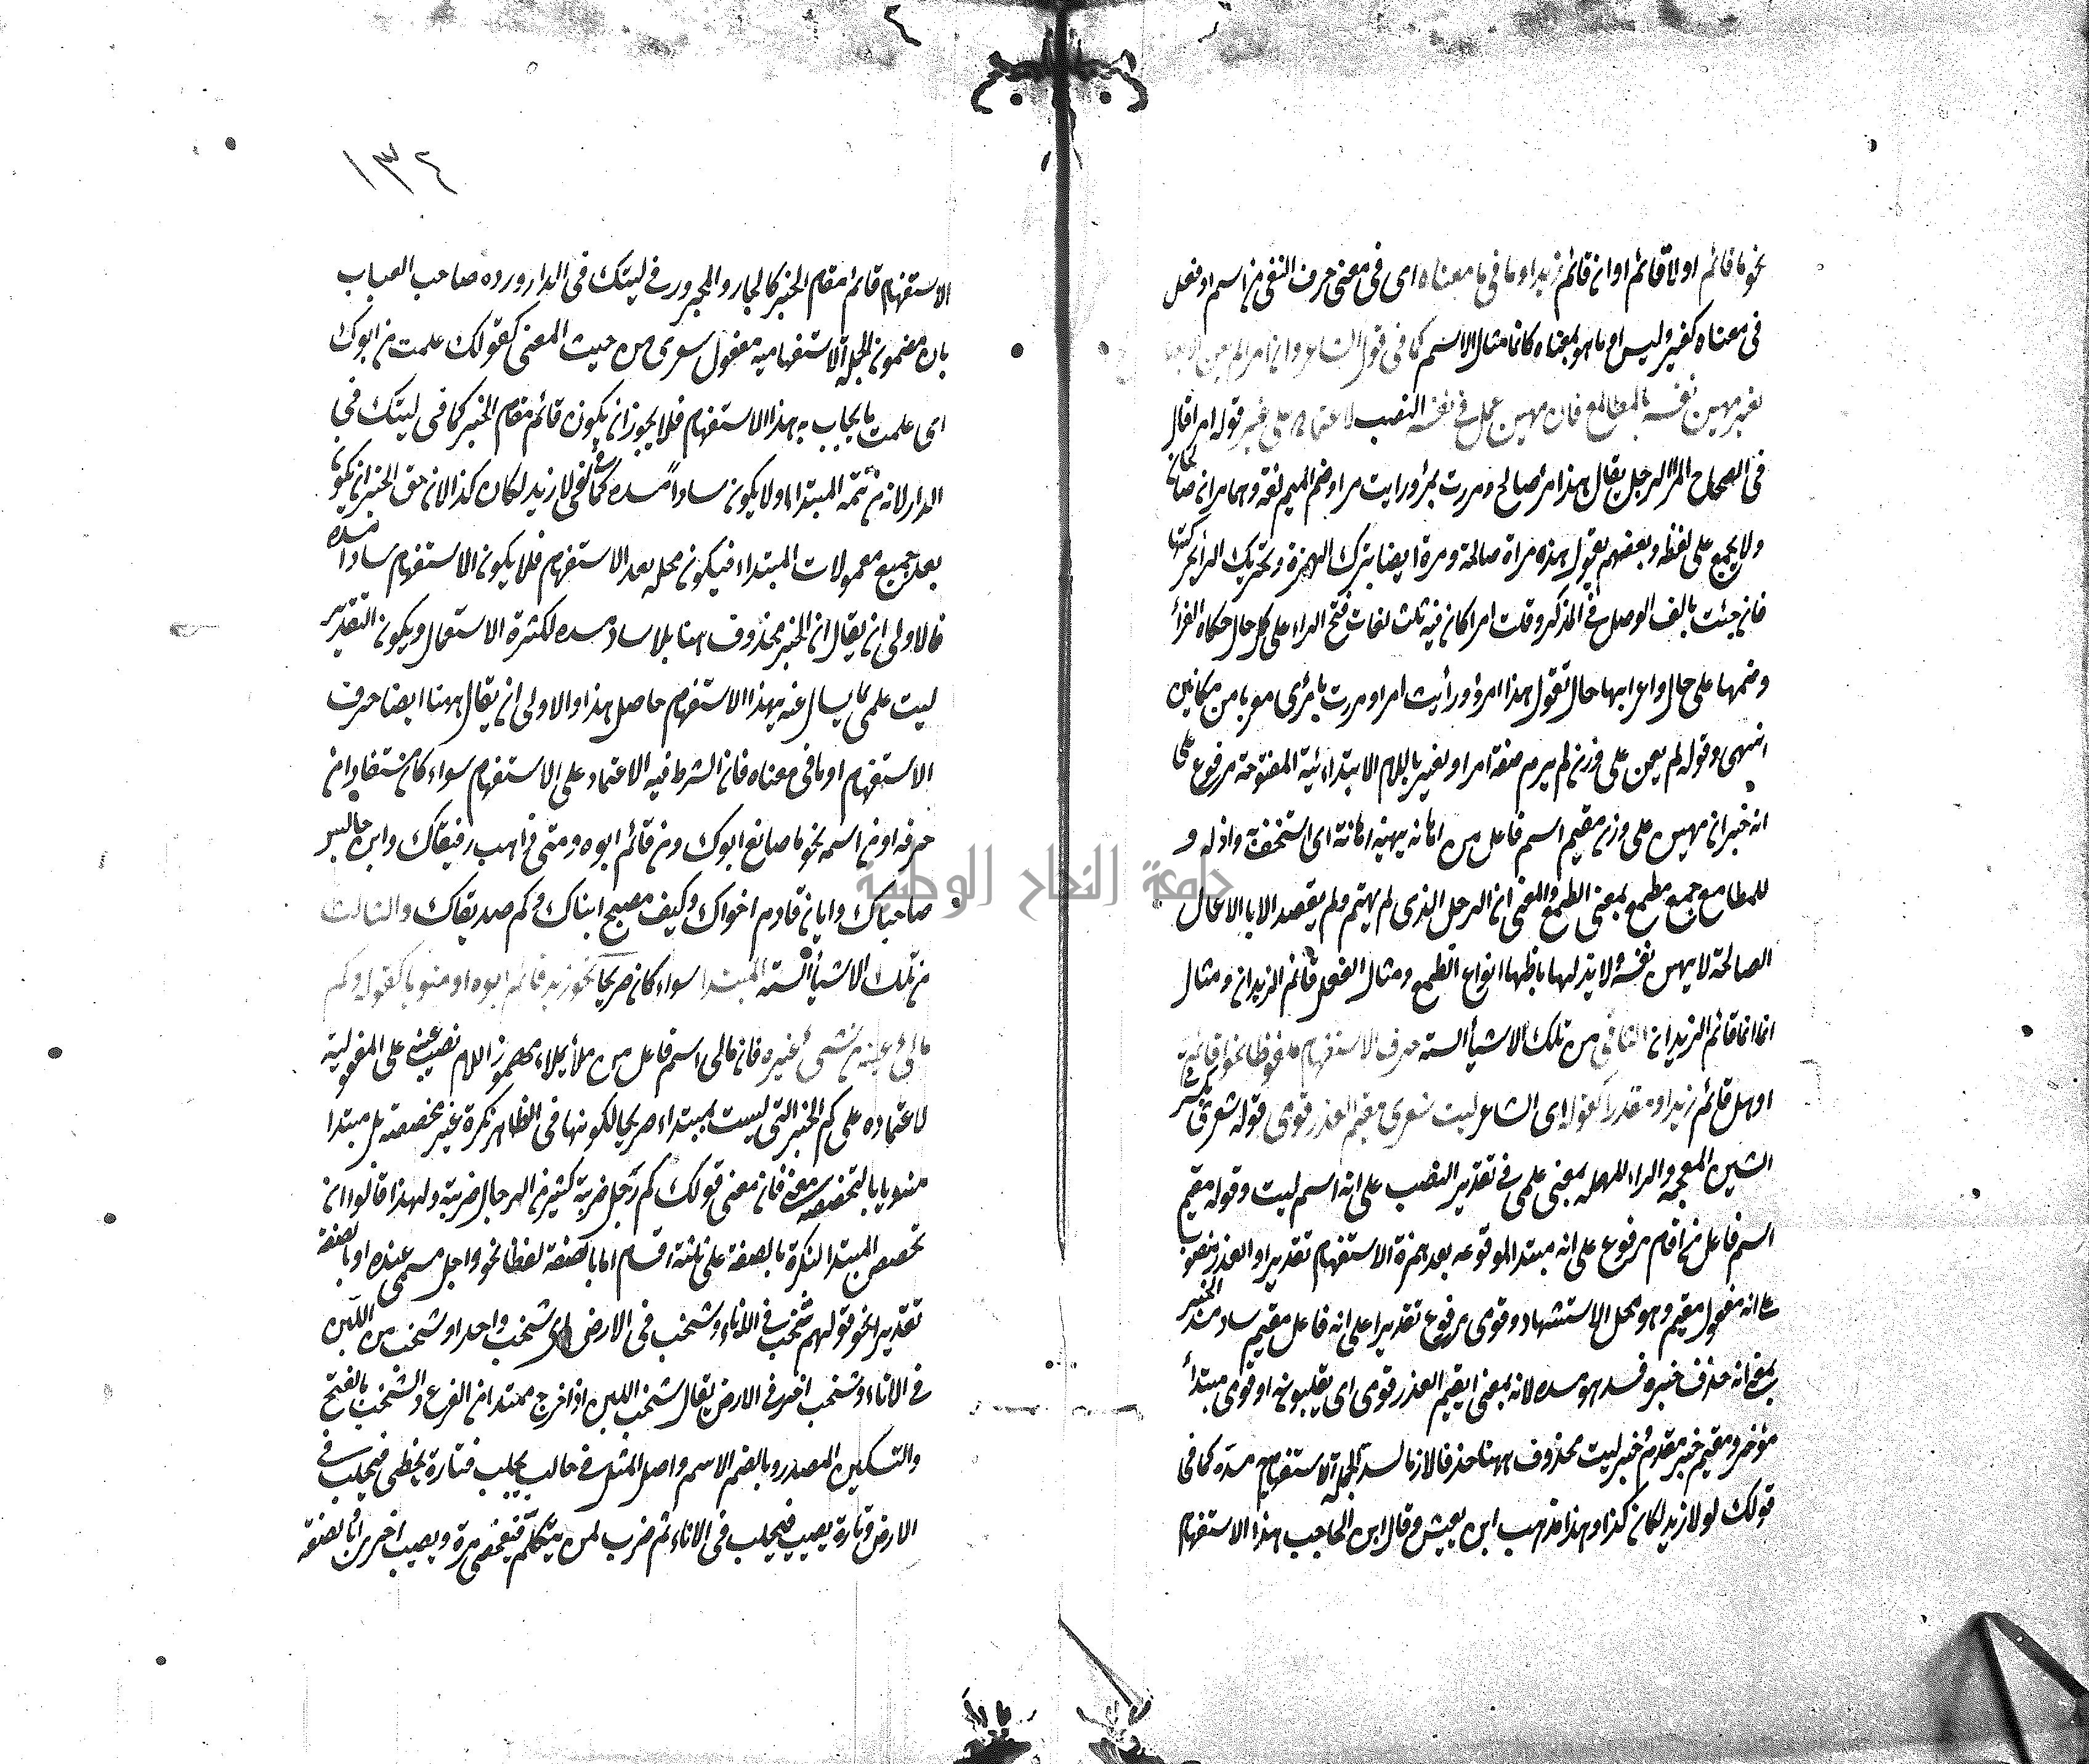 نحو ما قائم او لا قائم او ان قائم زيد او ما في ما معناه اى فى معنى حرف النفى من اسم او فعل
فى معناه كغير وليس او ما هو بمعناه كانما مثال الاسم كما فى قول الشاعر وان امرا لم يعن
لغير مهين نفسه بالمطامع فان مهين عمل فى نفسه النصب لاعتماده على غير قوله امرا قال
فى الصحاح المرأ الرجل يقال هذا مرء صالح ومررت بمرء ورايت مرا وضم الميم لغة وهما مران صالحان
ولا يجمع على لفظه وبعضهم يقول هذه مراة صالحة ومرة ايضا بترك الهمزة وتحريك الراء بحركتها
فان جئت بالف الوصل فى المذكر وقلت امرا كان فيه ثلث لغات فتح الراء على كل حال حكاه الفراء
وضمها على حال واعرابها حال تقول هذا امرؤ ورأيت امرا ومررت بامرئ معربا من مكانين
انتهى وقوله لم يعن على وزن لم يرم صفة امرا ولغير باللام الابتدائية المفتوحة مرفوع على
انه خبر ان مهين على وزن مقيم اسم فاعل من اهانه يهينه اهانة اى استخفه واذله و
للمطامع جمع مطمع بمعنى الطمع والمعنى ان الرجل الذى لم يهتم ولم يقصد الا بالاعمال
الصالحة لا يهين نفسه ولا يذلها باظهار انواع الطمع ومثال الفعل قائم الزيدان ومثال
انما انما قائم الزيدان الثانى من تلك الاشياء الستة حرف الاستفهام ملفوظا نحو اقائم
او هل قائم زيد او مقدرا كقوله اى الشاعر ليت شعرى مقيم العذر قومى قوله شعرى بكسر
الشين المعجمه والراء المهمله بمعنى علمى فى تقدير النصب على انه اسم ليت وقوله مقيم
اسم فاعل من اقام مرفوع على انه مبتدا لوقوعه بعد همزة الاستفهام تقديرا والعذر منصوب
على انه مفعول مقيم وهو محل الاستشهاد وقومى مرفوع تقديرا على انه فاعل مقيم ساد مسد الخبر
بمعنى انه حذف خبره فسد هو مسده لانه بمعنى ايقيم العذر قومى اى يقلبونه او قومى مبتدأ
مؤخر ومقيم خبر مقدم وخبر ليت محذوف ههنا حذفا لازما لسد الجملة الاستفهامية مسده كما فى
قولك لولا زيد لكان كذا وهذا مذهب ابن يعيش وقال ابن الحاجب هذا الاستفهام
١٣٤
الاستفهام قائم مقام الخبر كالجار والمجرور فى ليتك فى الدار ورده صاحب العباب
بان مضمون الجملة الاستفهاميه مفعول شعرى من حيث المعنى كقولك علمت من ابوك
اى علمت ما يجاب به هذا الاستفهام فلا يجوز ان يكون قائم مقام الخبر كما فى ليتك فى
الدار لانه من تتمة المبتدا ولا يكون سادا مسده كما فى لولا زيد لكان كذا لان حق الخبر ان يكون
بعد جميع معمولات المبتدا فيكون محله بعد الاستفهام فلا يكون الاستفهام سادا مسده
فالاولى ان يقال ان الخبر محذوف ههنا بلا ساد مسده لكثرة الاستعمال ويكون التقدير
ليت علمى بما يسال عنه بهذا الاستفهام حاصل هذا والاولى ان يقال ههنا ايضا حرف
الاستفهام او ما فى معناه فان الشرط فيه الاعتماد على الاستفهام سواء كان مستفادا من
حرفه او من اسمه نحو ما صانع ابوك ومن قائم ابوه ومتى ذاهب رفيقاك واين جالس
صاحباك وايان قادم اخواك وكيف مصبح ابناك وكم صديقاك والثالث
من تلك الاشياء الستة المبتدا سواء كان صريحا نحو زيد قائم ابوه او منويا كقوله وكم
مالئ عينيه من شئ غيره فان مالئ اسم فاعل من ملأ يملاء مهموز اللام نصب عينيه على المفعولية
لاعتماده على كم الخبر التى ليست بمبتداء صريحا لكونها فى الظاهر نكرة غير مخصصة بل مبتدا
منويا بالتخصص معنى فان معنى قولك كم رجل ضربته كثير من الرجال ضربته ولهذا قالوا ان
تخصص المبتدا النكرة بالصفة على ثلثة اقسام اما بالصفة لفظا نحو واجل مسمى عنده او بالصفة
تقديرا نحو قولهم شخب فى الاناء وشخب فى الارض اى شخب واحد او شخب من اللبن
فى الاناء وشخب اخر فى الارض يقال شخب اللبن اذا خرج ممتدا من الضرع والشخب بالفتح
والتسكين المصدر وبالضم الاسم واصل المثل فى حالب يحلب فتارة يخطى فيحلب فى
الارض وتارة يصيب فيحلب فى الاناء ثم ضرب لمن يتكلم فيخطى مرة ويصيب اخرى او بصفة
جامعة النجاح الوطنية